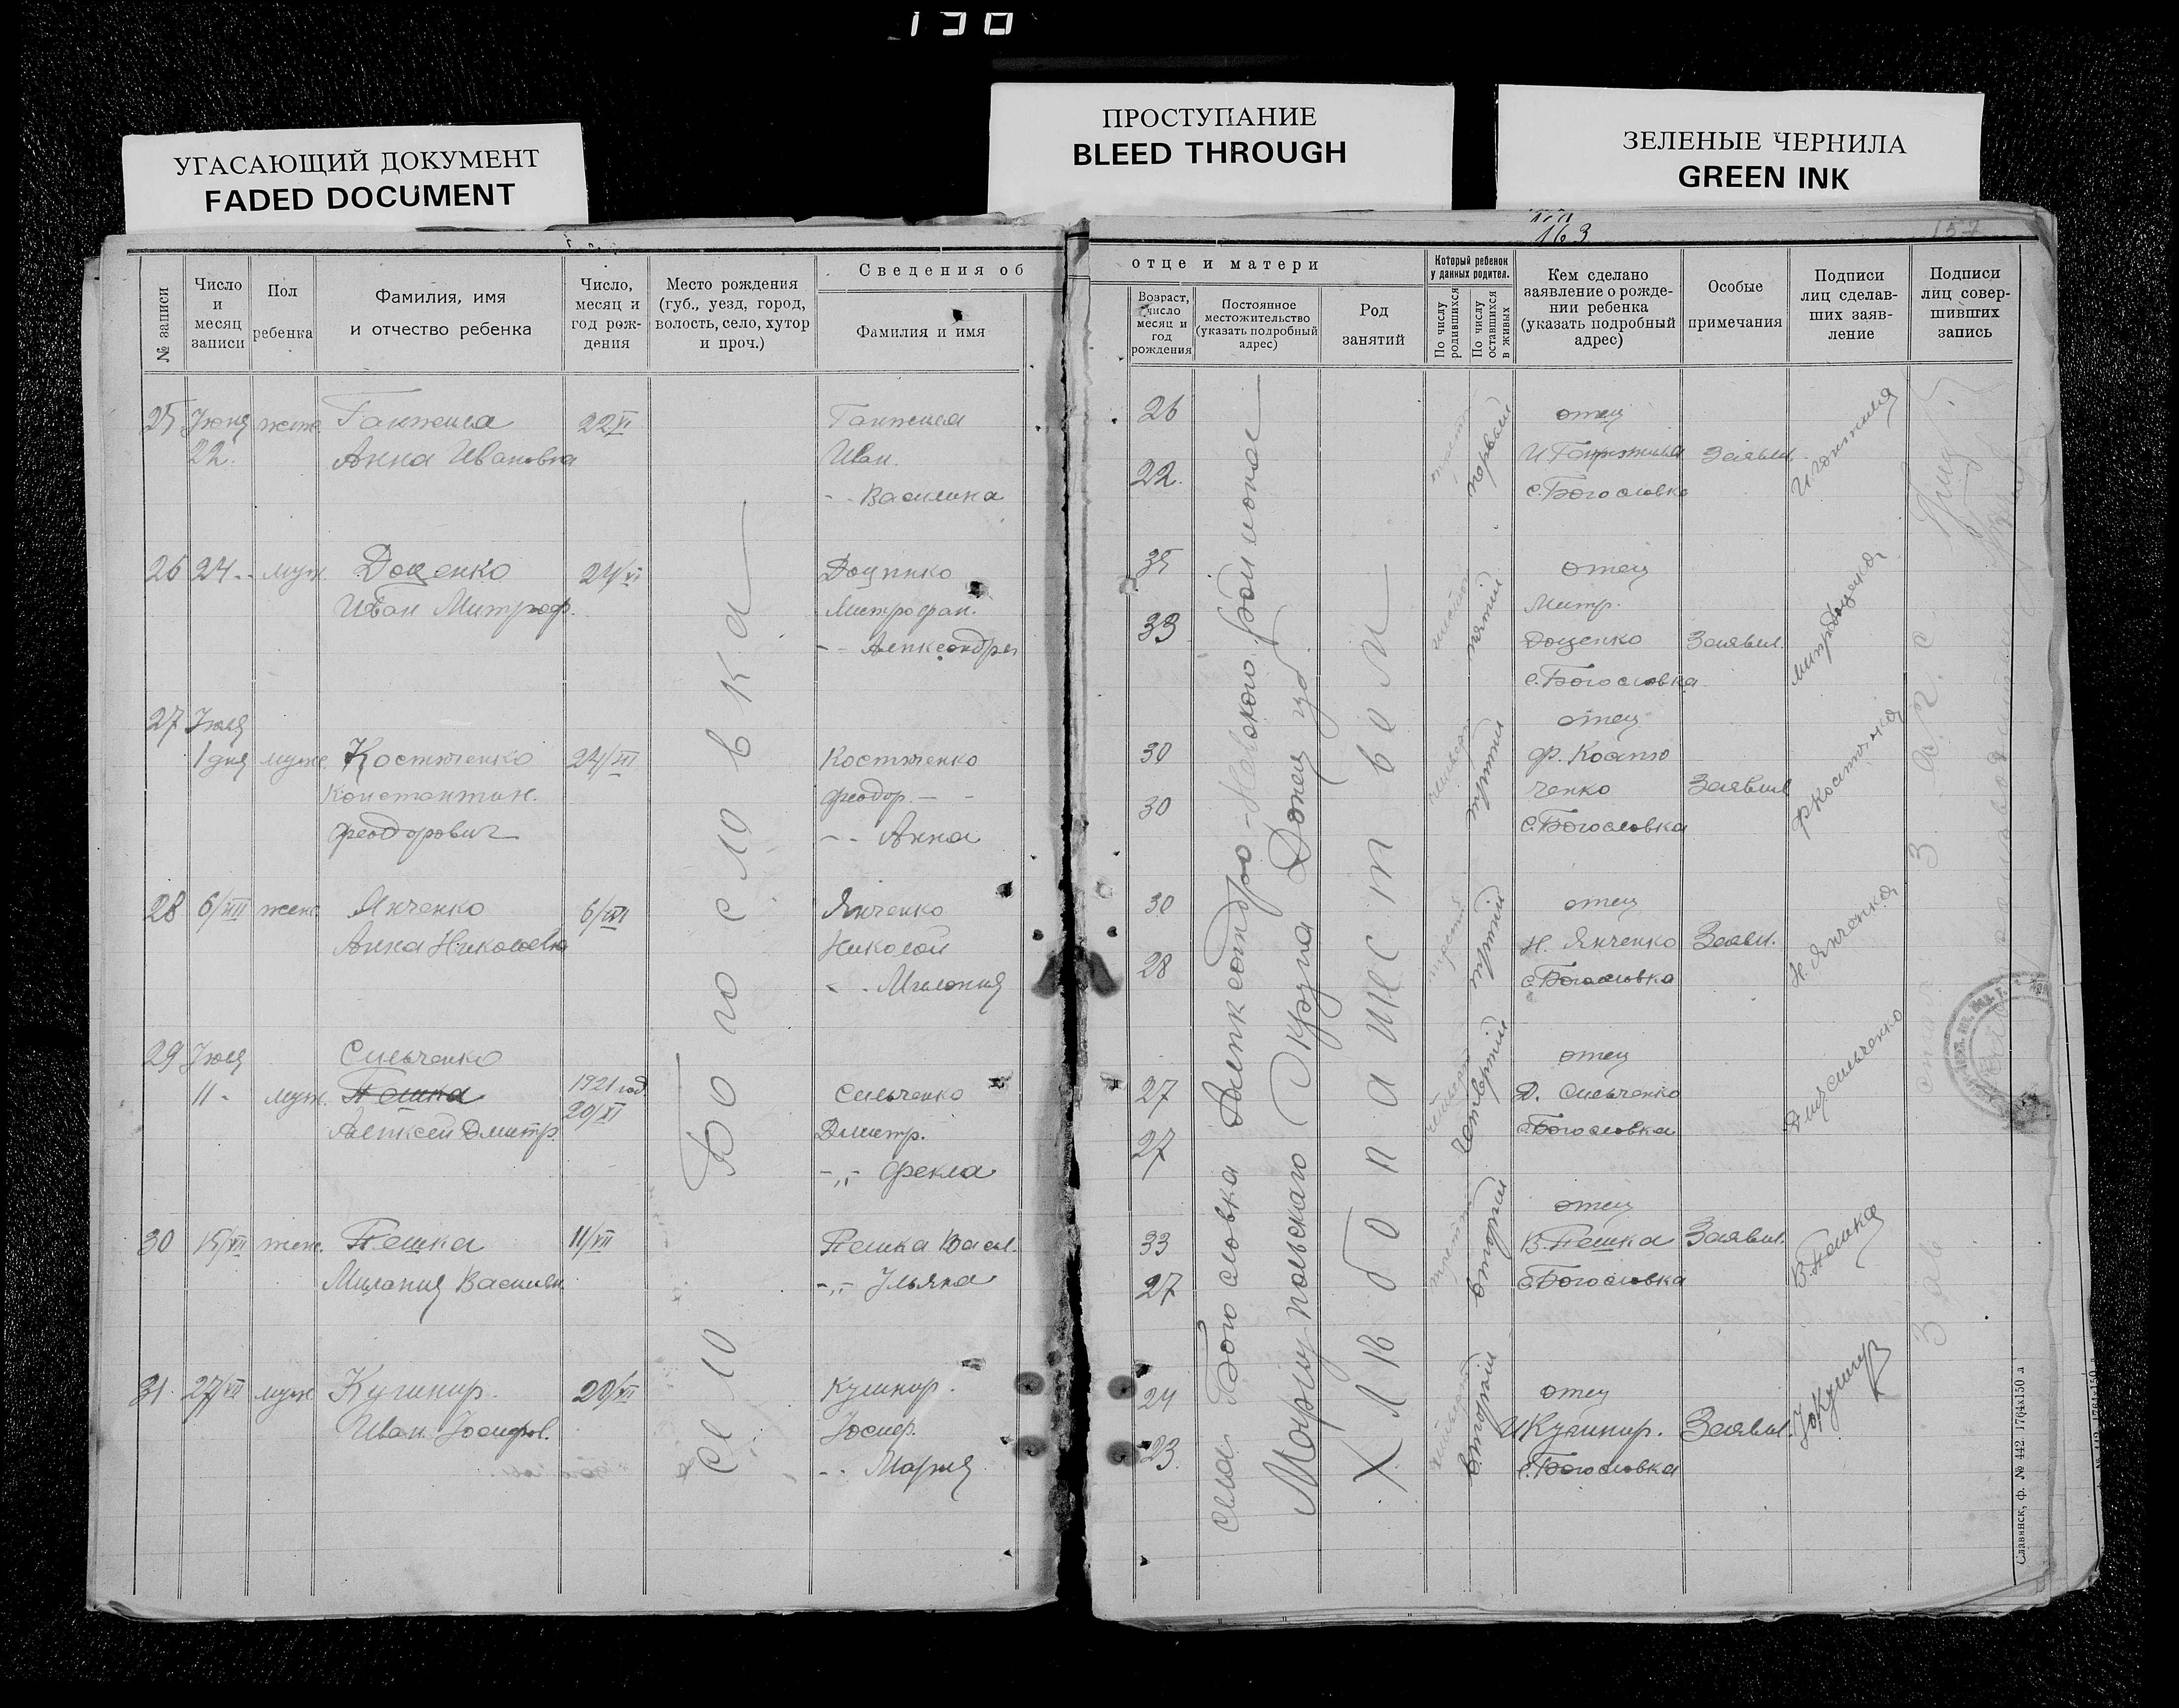 130
УГАСАЮЩИЙ ДОКУМЕНТ
FADED DOCUMENT
ПРОСТУПАНИЕ
BLEED THROUGH
ЗЕЛЕНЫЕ ЧЕРНИЛА
GREEN INK
163
157
№ записи
Число
и
месяц
записи
Пол
ребенка
Фамилия, имя
и отчество ребенка
Число,
месяц и
год рож-
дения
Место рождения
(губ., уезд, город,
волость, село, хутор
и проч.)
Сведения об
Фамилия и имя
отце и матери
Возраст,
число
месяц и
год
рождения
Постоянное
местожительство
(указать подробный
адрес)
Род
занятий
Который ребенок
у данных родител.
По числу
родившихся
По числу
оставшихся
в живых
Кем сделано
заявление о рожде-
нии ребенка
(указать подробный
адрес)
Особые
примечания
Подписи
лиц сделав-
ших заяв-
ление
Подписи
лиц совер-
шивших
запись
село Богословка
села Богословка Александро-Невского района
Мариупольскаго Округа Донец. губ.
Хлебопашество
25 Июня женс. Ганжила 22/VI Ганжила 26 отец
22. Анна Ивановна Иван. 22. первый И Ганжила Заявил.
- - Василина с. Богословка
26 24 - муж. Доценко 24/VI Доценко 35 отец
Иван Митроф. Митрофан. 33 пятый Митр.
- - Александра Доценко Заявил.
с. Богословка
27 Июля отец
1 дня муже. Костюченко 24/VI Костюченко 30 третий Ф. Костю
Константин. Феодор. - - 30 ченко Заявил
Феодорович - - Анна с. Богословка
Ф Костюченко
28 6/VII женс. Янченко 6/VII Янченко 30 отец
Анна Николаевна Николай 28 третий Н. Янченко Заявл.
- - с. Богословка
Н. Янченко
29 Июля Сильченко отец
11 - муж. Пешка 1921 год Сильченко 27 четвертый Д. Сильченко
20/XI
Алексей Дмитр. Дмитр. 27 с. Богословка
-„- Фекла
Дмр Сильченко
30 15/VII женс. Пешка 11/VII Пешка Васил. 33 второй отец
В. Пешка Заявил.
Милания Василь. -„- Ульяна 27 с. Богословка
В. Пешка
31. 27/VII муж. Кушнир. 20/VII Кушнир. 24 второй отец
Иван Иосифов. Иосиф. 23. И Кушнир. Заявил.
- - Мария с. Богословка
Славянск, ф. № 442. 1764х150 а